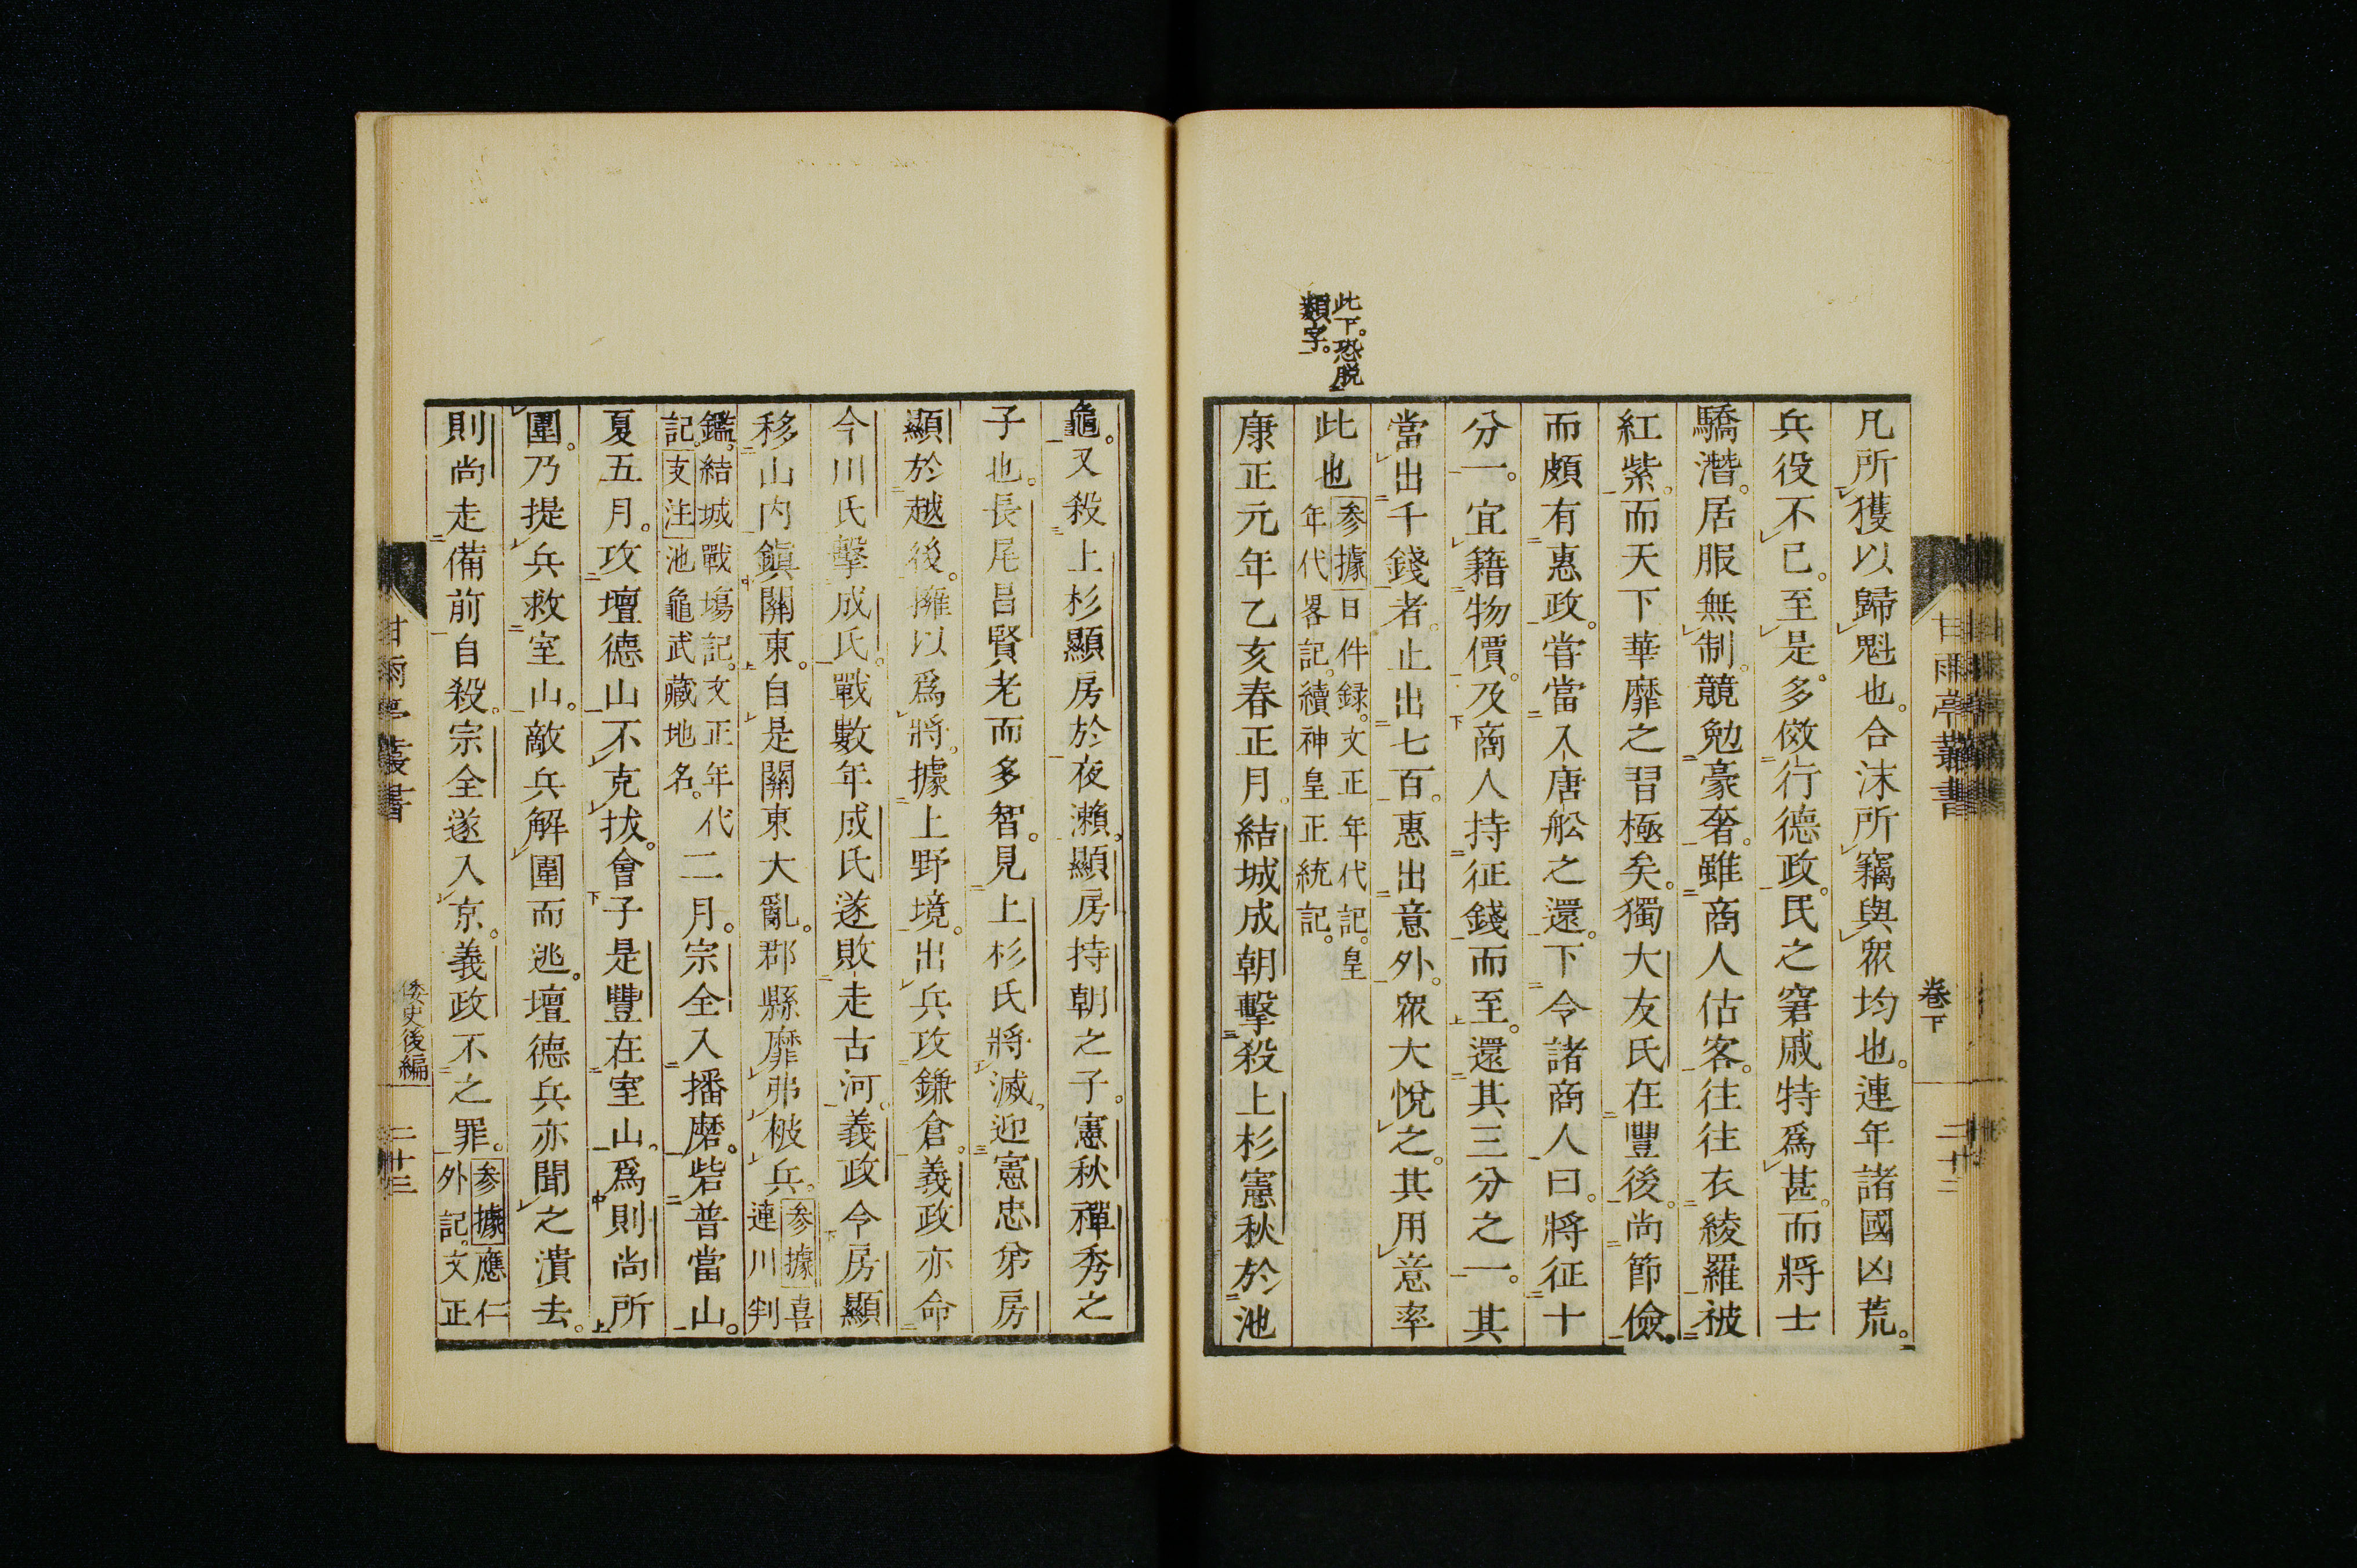 此下。恐脱
類字。
凡所獲以歸魁也。合沫所竊與衆均也。連年諸國凶荒。
兵役不已。至是。多儌行德政。民之窘戚特爲甚。而將士
驕潛。居服無制。競勉豪奢。雖商人估客。往往衣綾羅被
紅紫。而天下華靡之習極矣。獨大友氏在豐後。尚節儉。
而頗有惠政。嘗當入唐舩之還。下令諸商人曰。將征十
分一。宜籍物價。及商人持征錢而至。還其三分之一。其
當出千錢者。止出七百。惠出意外。衆大悅之。其用意率
此也参據日件録。文正年代記。皇
年代畧記。續神皇正統記。
康正元年乙亥春正月。結城成朝擊殺上杉憲秋於池
甘雨亭叢書
卷下
龜。又殺上杉顯房於夜瀨。顯房持朝之子。憲秋禪秀之
子也。長尾昌賢老而多智。見上杉氏將滅。迎憲忠弟房
顯於越後。擁以爲將。據上野境。出兵攻鎌倉。義政亦命
今川氏擊成氏。戰數年成氏遂敗走古河。義政令房顯
移山内鎭關東。自是關東大亂。郡縣靡弗被兵。参據喜
連川判
鑑。結城戰塲記。文正年代
記。支注池龜武藏地名。
二月。宗全入播磨。砦普當山。
夏五月。攻壇德山不克拔。會子是豐在室山。爲則尚所
圍。乃提兵救室山。敵兵解圍而逃。壇德兵亦聞之潰去。
則尚走備前自殺。宗全遂入京。義政不之罪。参據應仁
外記。文正
甘雨亭叢書
倭史後編
二十三